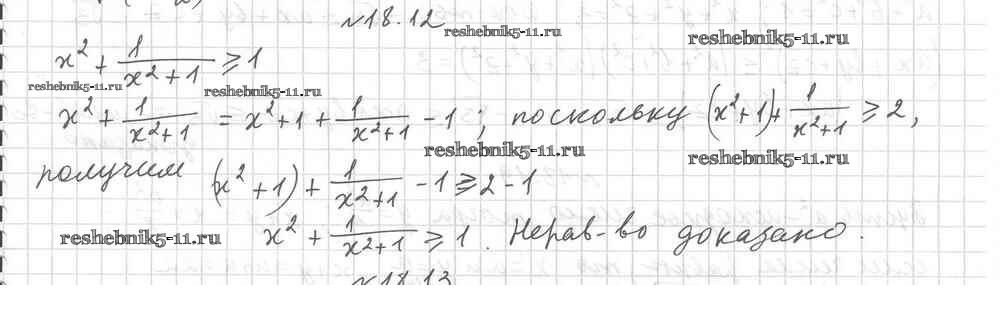 №18.12
reshebnik5-11.ru
reshebnik5-11.ru
x² + 1/(x²+1) ≥ 1
reshebnik5-11.ru
reshebnik5-11.ru
x² + 1/(x²+1) = x²+1 + 1/(x²+1) - 1; поскольку (x²+1) + 1/(x²+1) ≥ 2,
reshebnik5-11.ru
reshebnik5-11.ru
получим (x²+1) + 1/(x²+1) - 1 ≥ 2 - 1
reshebnik5-11.ru
x² + 1/(x²+1) ≥ 1. Нерав-во доказано.
№18.13